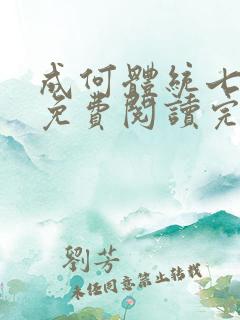 成何體統七
免費閱讀完
劉芳
未經同意禁止轉載